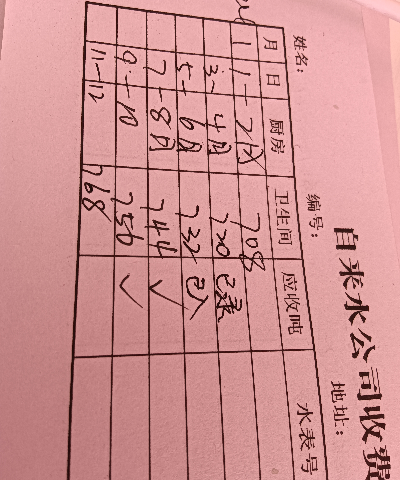 自来水公司收费
姓名： 编号： 地址：
月 日 厨房 卫生间 应收吨 水表号
1 1－2月 708
3－4月 720 已录
5－6月 732 已
7－8月 744 ✓
9－10 756 ✓
11－12 768